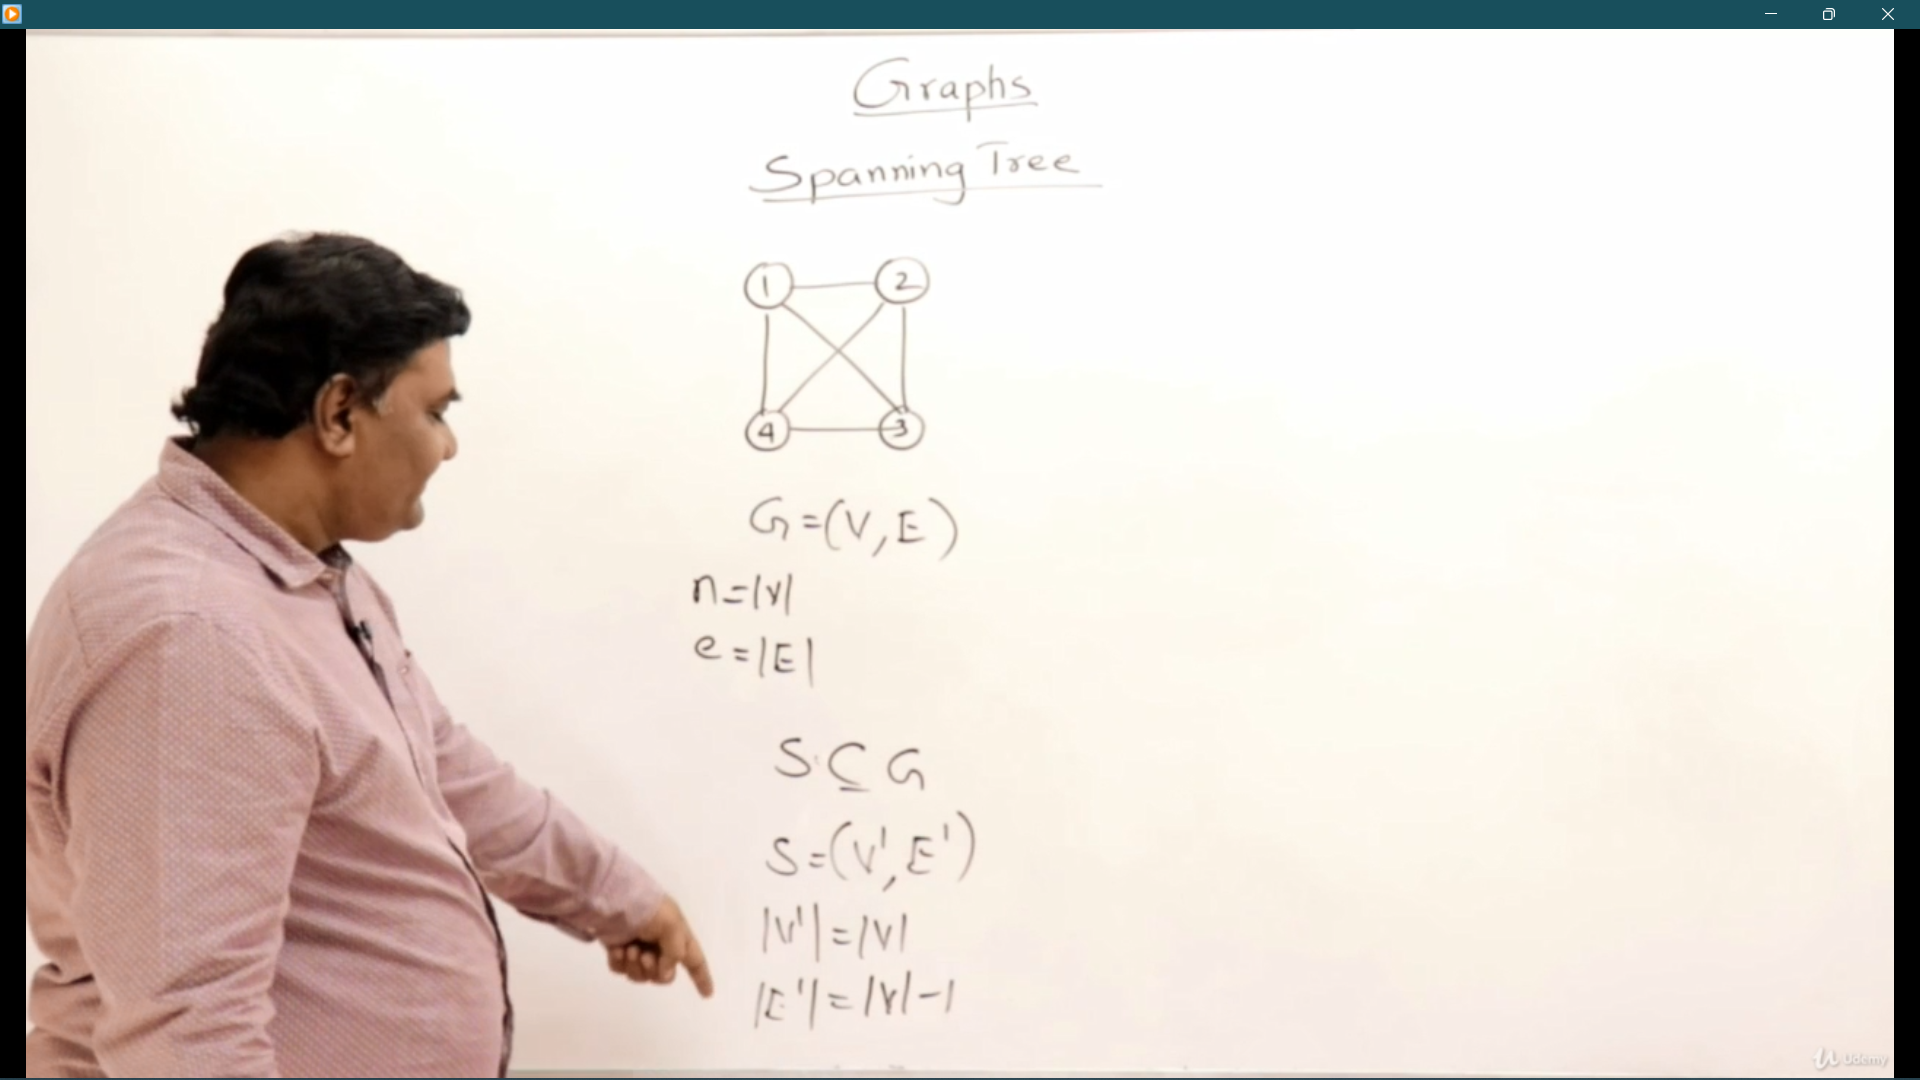 Graphs
Spanning Tree
1 2
4 3
G=(V,E)
n=|V|
e=|E|
S⊆G
S=(V',E')
|V'|=|V|
|E'|=|V|-1
Udemy